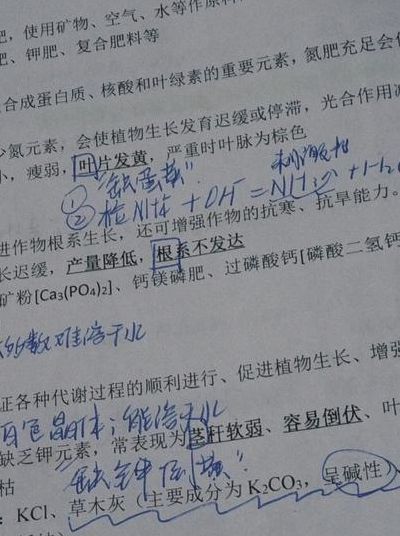 肥，使用矿物、空气、水等作原料
肥、钾肥、复合肥料等
合成蛋白质、核酸和叶绿素的重要元素，氮肥充足会使
少氮元素，会使植物生长发育迟缓或停滞，光合作用减
小，瘦弱，叶片发黄，严重时叶脉为棕色
① "缺蛋黄"
② 检NH4 + OH = NH
进作物根系生长，还可增强作物的抗寒、抗旱能力。
长迟缓，产量降低，根系不发达
矿粉[Ca₃(PO₄)₂]、钙镁磷肥、过磷酸钙[磷酸二氢钙
大多数难溶于水
证各种代谢过程的顺利进行、促进植物生长、增强
白色晶体；能溶于水
缺乏钾元素，常表现为茎秆软弱、容易倒伏、叶
枯
：KCl、草木灰（主要成分为K₂CO₃，呈碱性）